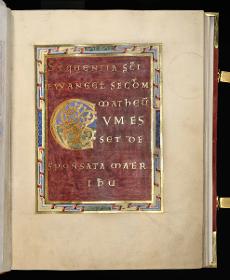 SEQUENTIA SCI
EVVANGEL SECDM
MATHEU
CVM ES
SET DE
SPONSATA MAER
IHU